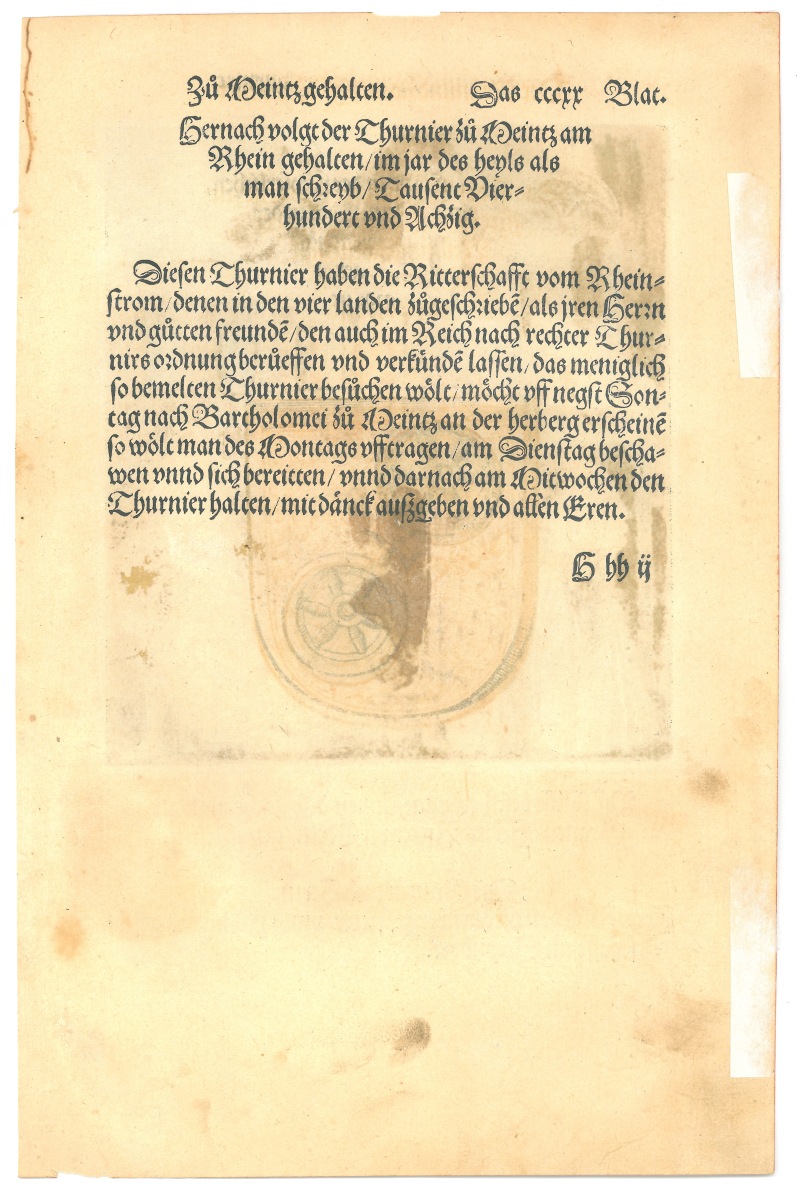 Zů Meintz gehalten. Das cccxx Blat.
Hernach volgt der Thurnier zů Meintz am
Rhein gehalten/ im jar des heyls als
man schreyb/ Tausent Vier-
hundert vnd Achzig.
Diesen Thurnier haben die Ritterschafft vom Rhein-
strom/ denen in den vier landen zůgeschriebē/ als jren Herrn
vnd gůtten freundē/ den auch im Reich nach rechter Thur-
nirs ordnung berůeffen vnd verkündē lassen/ das meniglich
so bemelten Thurnier besůchen wölt/ möcht vff negst Son-
tag nach Bartholomei zů Meintz an der herberg erscheinē
so wölt man des Montags vfftragen/ am Dienstag bescha-
wen vnnd sich bereitten/ vnnd darnach am Mitwochen den
Thurnier halten/ mit dänck außgeben vnd allen Eren.
H hh ij